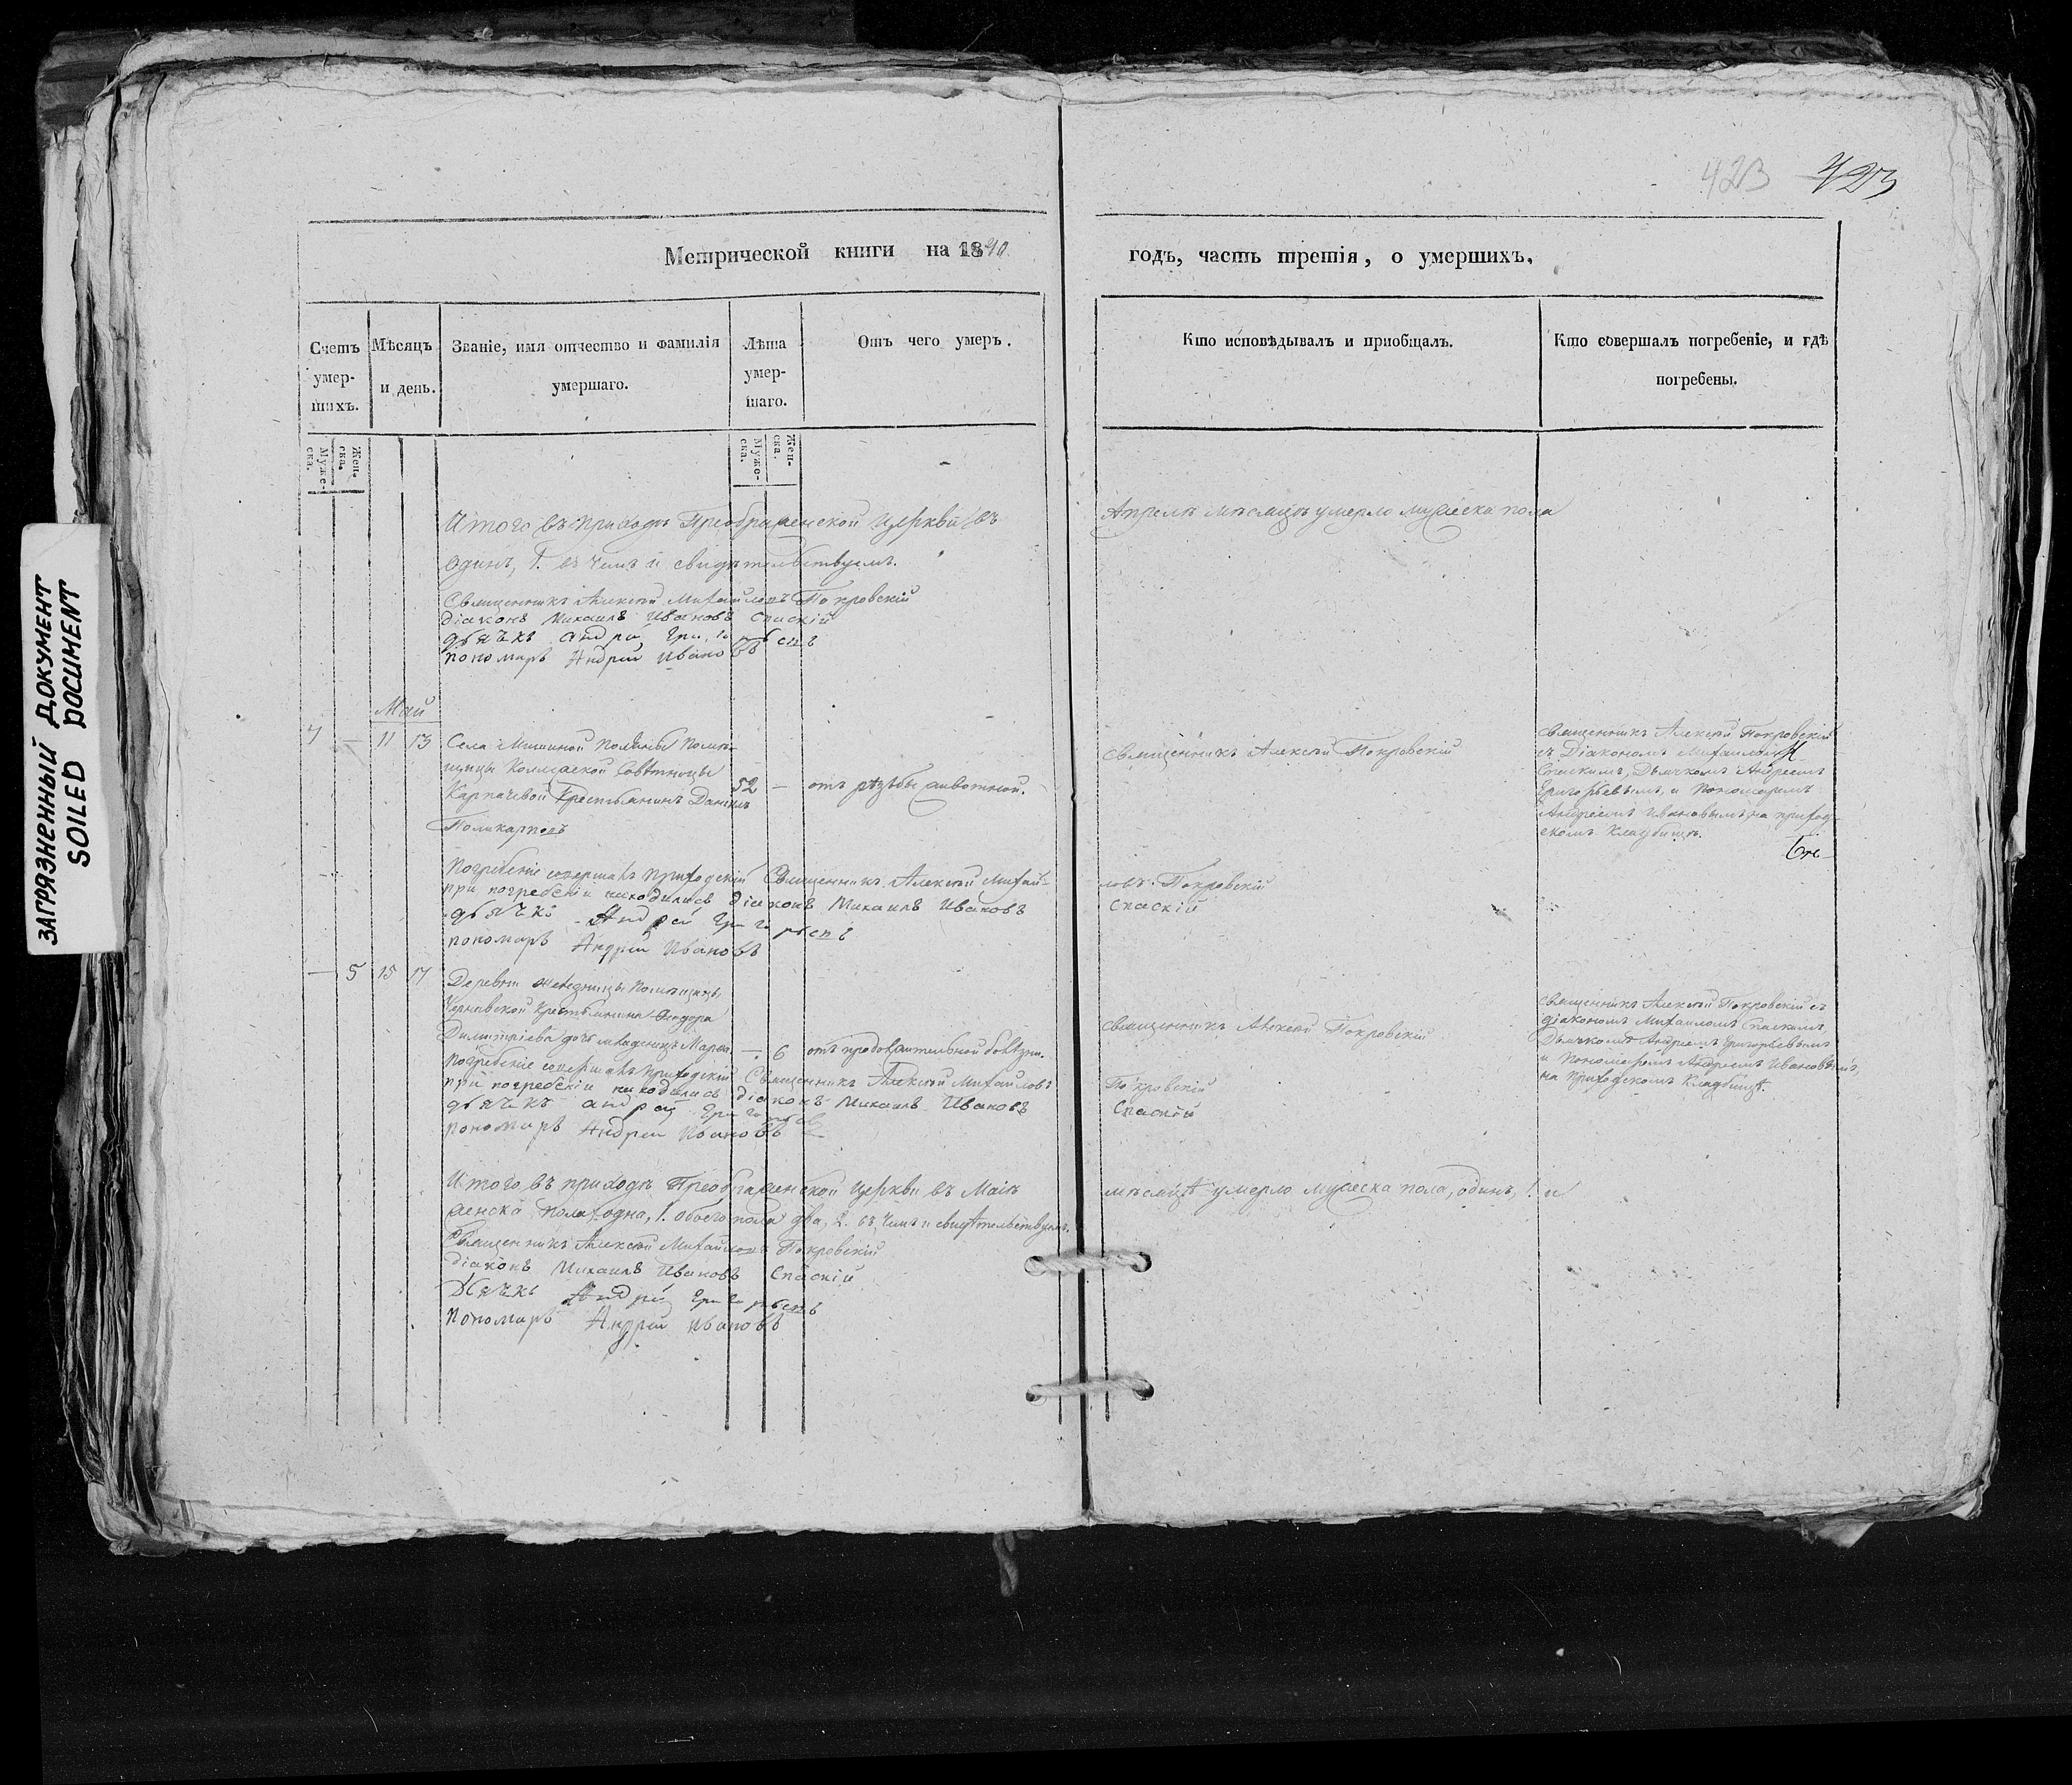 423 423
Метрической книги на 1840
годъ, часть третія, о умершихъ.
Счетъ умер-шихъ.
Мѣсяцъ и день.
Званіе, имя отчество и фамилія умершаго.
Лѣта умер-шаго.
Отъ чего умеръ.
Кто исповѣдывалъ и пріобщалъ.
Кто совершалъ погребеніе, и гдѣ погребены.
Муже-ска.
Жен-ска.
Муже-ска.
Жен-ска.
Итого въ приходѣ Преображенской Церкви въ Апрелѣ мѣсяцѣ умерло мужеска пола
одинъ, 1. въ чемъ и свидѣтельствуемъ.
Священникъ Алексѣй Михайловъ Покровскій
діаконъ Михаилъ Ивановъ Спаскій
дьячкъ Андрей Григорьевъ
пономарь Андрей Ивановъ
Май
— 11 13 Села Полѣ-
щицы Колежской Совѣтницы
Карпачевой Крестьянинъ Даніилъ
Поликарповъ
52 — отъ рѣзьбы животной.
Священникъ Алексѣй Покровскій
Священникъ Алексѣй Покровскій
съ Діакономъ Михаиломъ
Спаскимъ, Дьячкомъ Андреемъ
Григорьевымъ, и Пономаремъ
Андреемъ Ивановымъ на приход-
скомъ кладбищѣ.
Погребеніе совершалъ приходскій Священникъ Алексѣй Михай-
ловъ Покровскій
при погребеніи находились діаконъ Михаилъ Ивановъ
Спаскій
дьячкъ Андрей Григорьевъ
пономарь Андрей Ивановъ
— 5 15 17 Деревни Помѣщицы
Крестьянина Ѳедора
Димитріева дочь младенецъ Марѳа
— 6 отъ продолжительной болѣзни.
Священникъ Алексѣй Покровскій
Священникъ Алексѣй Покровскій съ
діакономъ Михаиломъ Спаскимъ,
Дьячкомъ Андреемъ Григорьевымъ
и Пономаремъ Андреемъ Ивановымъ,
на приходскомъ кладбищѣ.
Погребеніе совершалъ приходскій Священникъ Алексѣй Михайловъ
Покровскій
при погребеніи находились діаконъ Михаилъ Ивановъ
Спаскій
дьячкъ Андрей
пономарь Андрей Ивановъ
Итого въ приходѣ Преображенской Церкви въ Маіѣ мѣсяцѣ умерло мужеска пола, одинъ, 1. и
женска пола одна, 1. обоего пола два, 2. въ чемъ и свидѣтельствуемъ.
Священникъ Алексѣй Михайловъ Покровскій
діаконъ Михаилъ Ивановъ Спаскій
Дьячкъ Андрей Григорьевъ
Пономарь Андрей Ивановъ
ЗАГРЯЗНЕННЫЙ ДОКУМЕНТ
SOILED DOCUMENT